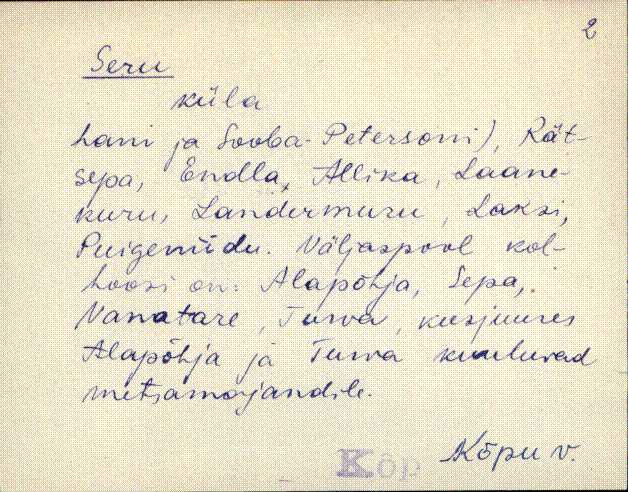 2
Seru
küla
hani ja Sooba-Petersoni), Rät-
sepa, Endla, Allika, Laane-
kuru, Landermuru, Laksi,
Puigeniidu. Väljaspool kol-
hoosi on: Alapõhja, Sepa,
Vanatare, Turva, kusjuures
Alapõhja ja Turva kuuluvad
metsamajandile.
Kõpu v.
Kõp